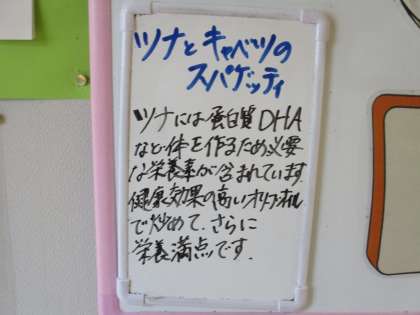 ツナとキャベツの
スパゲッティ
ツナには蛋白質DHA
など体を作るため必要
な栄養素が含まれています
健康効果の高いオリーブオイル
で炒めて、さらに
栄養満点です。